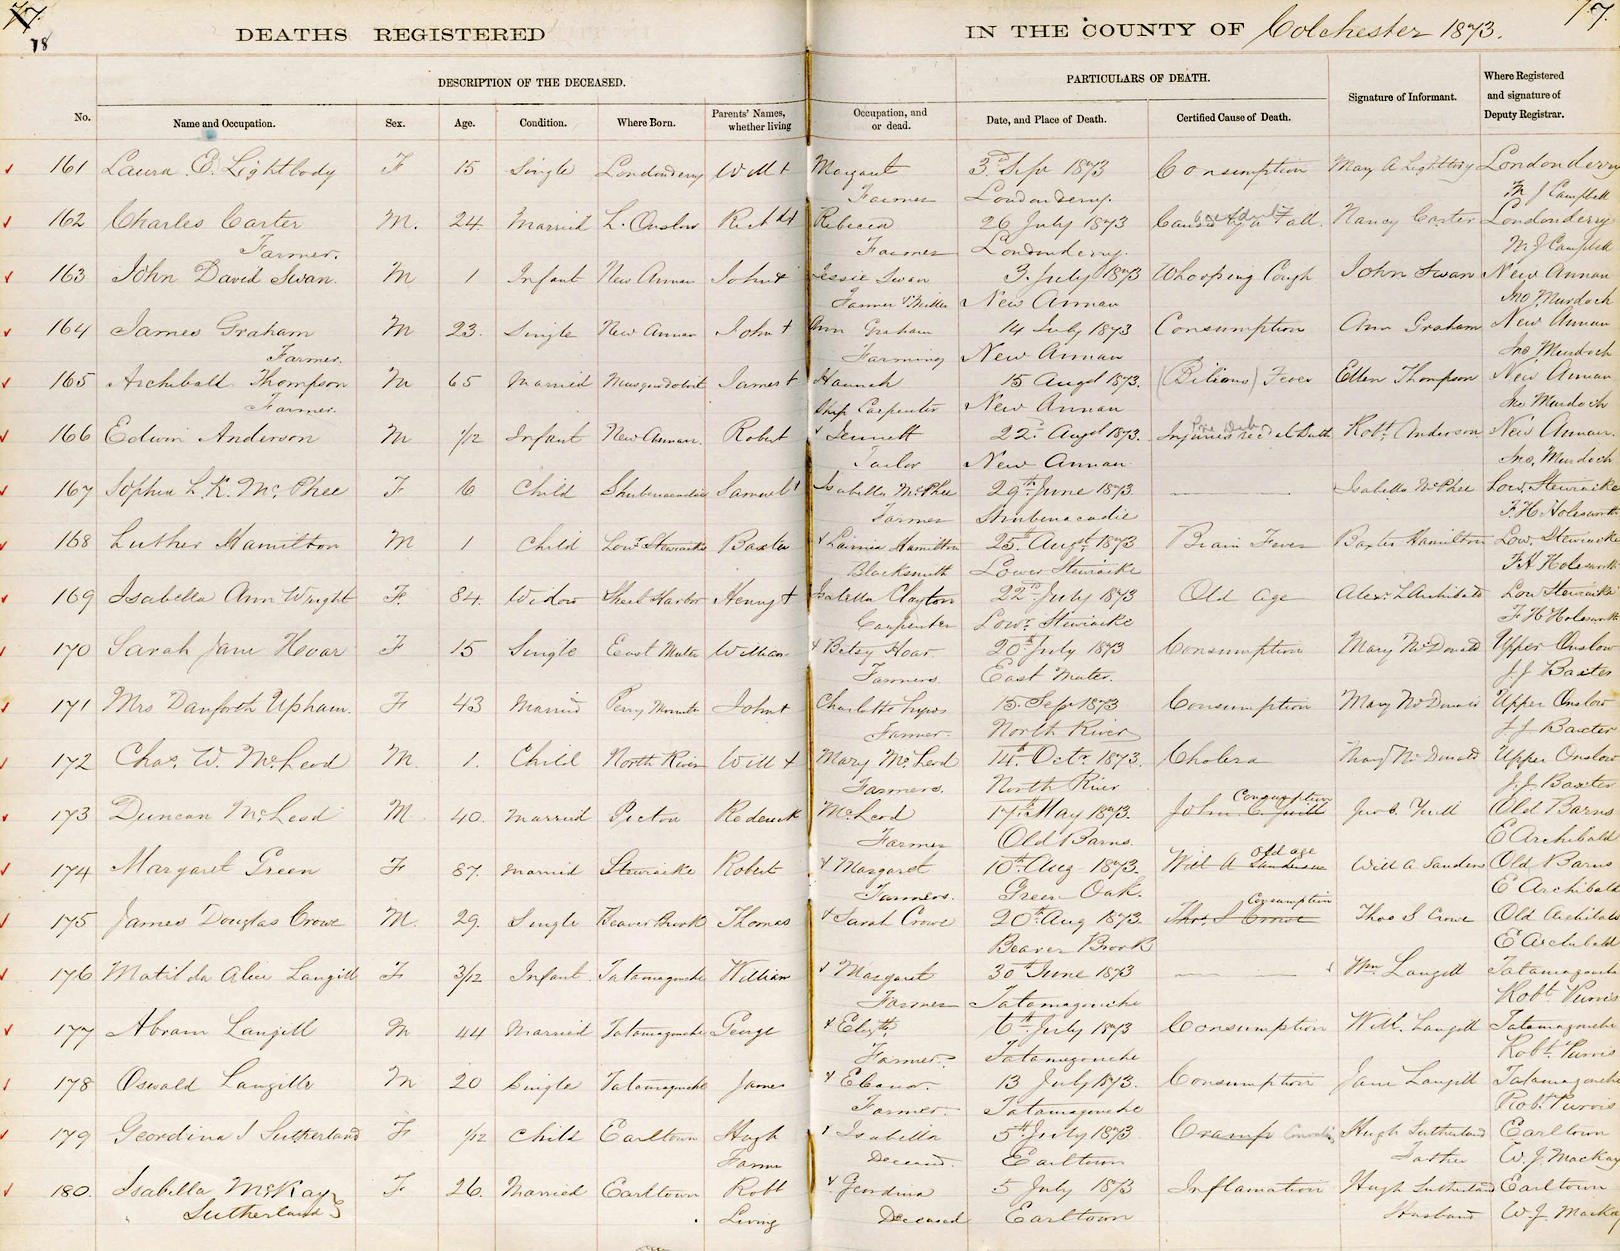 77. 77.
78
DEATHS REGISTERED IN THE COUNTY OF Colchester 1873.
DESCRIPTION OF THE DECEASED. PARTICULARS OF DEATH. Signature of Informant. Where Registered and signature of Deputy Registrar.
No. Name and Occupation. Sex. Age. Condition. Where Born. Parents' Names, whether living Occupation, and or dead. Date, and Place of Death. Certified Cause of Death.
161 Laura E. Lightbody F 15 Single Londonderry Will + Margaret 3d Sept 1873 Consumption Mary A Lightbody Londonderry
Farmer Londonderry. M J Campbell
162 Charles Carter M. 24 Married L. Onslow Richd + Rebecca 26 July 1873 Caused by a Fall. Nancy Carter Londonderry
Farmer. Farmer Londonderry. M J Campbell
163 John David Swan. M 1 Infant New Annan John + Jessie Swan 3. July 1873 Whooping Cough John Swan New Annan
Farmer & Miller New Annan Jno Murdoch
164 James Graham M 23. Single New Annan John + Ann Graham 14 July 1873 Consumption Ann Graham New Annan
Farmer. Farming New Annan Jno Murdoch
165 Archibald Thompson M 65 Married Musquodoboit James + Hannah 15 Augst 1873. (Bilious) Fever Ellen Thompson New Annan
Farmer. Ship Carpenter New Annan Jno Murdoch
166 Edwin Anderson M 1/12 Infant New Annan. Robert + Jennett 22d Augst 1873. Injuries recd at Birth Robt Anderson New Annan.
Tailor New Annan Jno. Murdoch
167 Sophia L. K. McPhee F 6 Child Shubenacadie Samuel + Isabella McPhee 29th June 1873 Isabella McPhee Low. Stewiacke
Farmer Shubenacadie F. H Holesworth
168 Luther Hamilton M 1 Child Lowr Stewiacke Baxter + Lavinia Hamilton 25th Augst 1873 Brain Fever Baxter Hamilton Low. Stewiacke
Blacksmith Lower Stewiacke F H Holesworth
169 Isabella Ann Wright F. 84. Widow Sheet Harbor Henry + Isabella Clayton 22d July 1873 Old age Alexr L Archibald Low Stewiacke
Carpenter Lowr. Stewiacke F H Holesworth
170 Sarah Jane Hoar F 15 Single East Mntn William + Betsy Hoar 20th July 1873 Consumption Mary McDonald Upper Onslow
Farmers. East Mntn. J. J Baxter
171 Mrs Danforth Upham. F 43 Married John + Charlotte 15. Sept 1873 Consumption Mary McDonald Upper Onslow
Farmer. North River J. J Baxter
172 Chas. W. McLeod M. 1. Child North River Will + Mary McLeod 14th Octr. 1873. Cholera Mary McDonald Upper Onslow
Farmers. North River J. J. Baxter
173 Duncan McLeod M 40. Married Pictou Roderick McLeod 17th May 1873. John C. Yuill Consumption Jno C. Yuill Old Barns
Farmer Old Barns. E Archibald
174 Margaret Green F 87. Married Stewiacke Robert + Margaret 10th Aug 1873. Will A Sanderson Old age Will A Sanders Old Barns
Farmers. Green Oak. E Archibald
175 James Douglas Crowe M. 29. Single Beaver Brook Thomas + Sarah Crowe 20th Aug 1873. Thos. S Crowe Consumption Thos S Crowe Old Archibald
Beaver Brook E Archibald
176 Matilda Alice Langill F 3/12 Infant Tatamagouche William + Margaret 30th June 1873 Wm Langill Tatamagouche
Farmer Tatamagouche Robt Purvis
177 Abram Langill M 44 Married Tatamagouche George + Elizth. 6th July 1873 Consumption Will. Langill Tatamagouche
Farmer. Tatamagouche Robt. Purvis
178 Oswald Langille M 20 Single Tatamagouche James + Eleanor. 13 July 1873. Consumption Jane Langill Tatamagouche
Farmer. Tatamagouche Robt Purvis
179 Geordina I Sutherland F 1/12 Child Earltown Hugh + Isabella 5th July 1873 Cramp Hugh Sutherland Earltown
Farmer Deceased. Earltown Father W. J. Mackay
180. Isabella McKay F 26. Married Earltown Robt + Geordina 5 July 1873 Inflamation Hugh Sutherland Earltown
Sutherland Living Deceased Earltown Husband W. J. Mackay